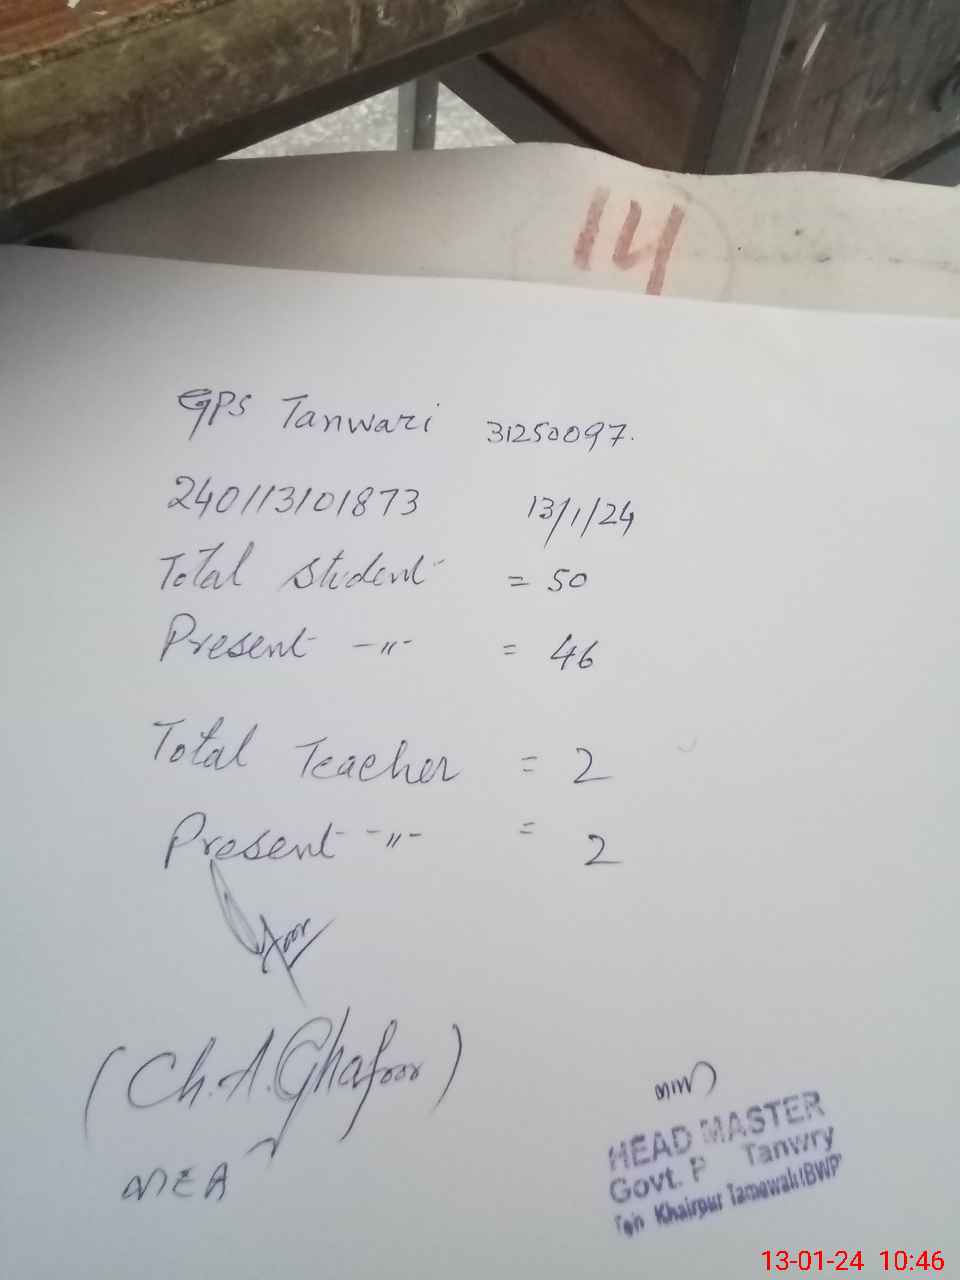 14
GPS Tanwari 31250097.
240113101873 13/1/24
Total Student = 50
Present -〃- = 46
Total Teacher = 2
Present -〃- = 2
(Ch. A. Ghafoor)
MEA
HEAD MASTER
Govt. P Tanwry
Teh Khairpur Tamewali (BWP
13-01-24 10:46